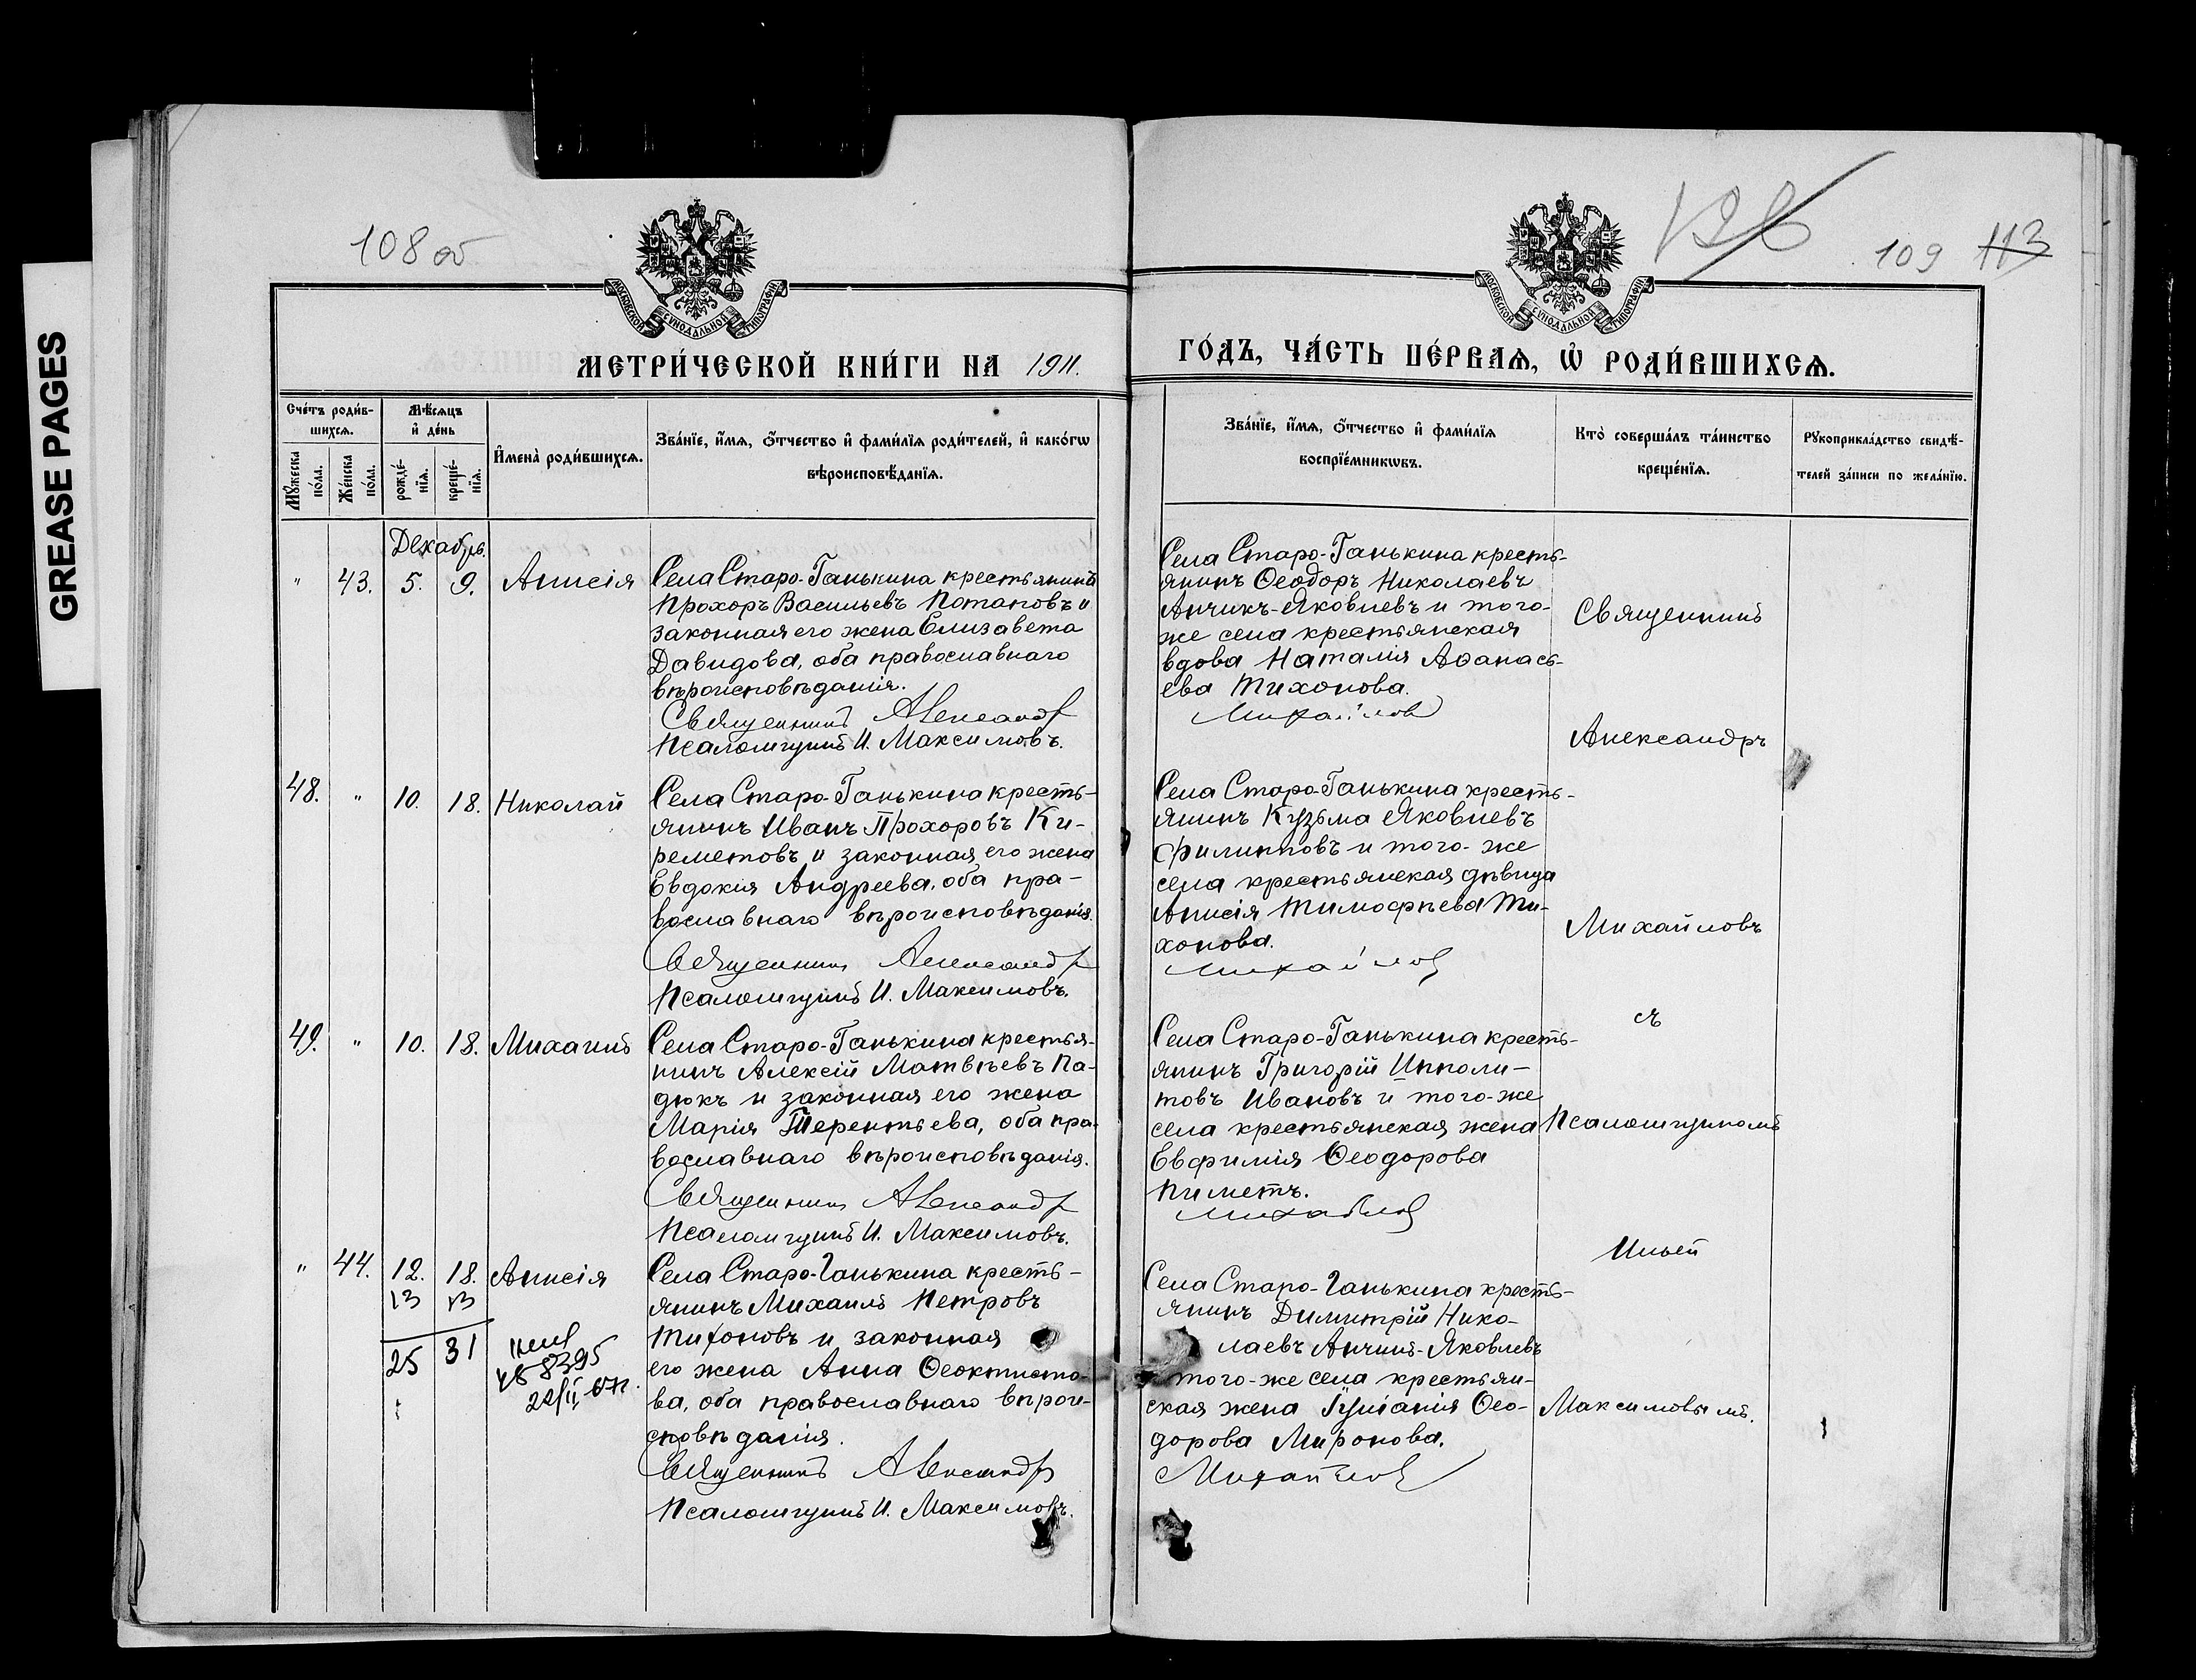 GREASE PAGES
108 об
109
113
МОСКОВСКОЙ СѴНОДАЛЬНОЙ ТИПОГРАФІИ
МОСКОВСКОЙ СѴНОДАЛЬНОЙ ТИПОГРАФІИ
МЕТРИ́ЧЕСКОЙ КНИ́ГИ НА 1911.
ГО́ДЪ, ЧА́СТЬ ПЕ́РВАѦ, Ѡ҆ РОДИ́ВШИХСѦ.
Сче́тъ роди́в-
шихсѧ.
Мѣ́сѧцъ
и҆ де́нь
Мꙋ́жеска
по́ла.
Же́нска
по́ла.
рожде́-
нїѧ.
креще́-
нїѧ.
И҆мена̀ роди́вшихсѧ.
Зва́нїе, и҆́мѧ, ѻ҆́тчество и҆ фами́лїѧ роди́телей, и҆ како́гѡ
вѣроисповѣ́данїѧ.
Зва́нїе, и҆́мѧ, ѻ҆́тчество и҆ фами́лїѧ
воспрїе́мникѡвъ.
Кто̀ соверша́лъ та́инство
креще́нїѧ.
Рꙋкоприкла́дство свидѣ́-
телей за́писи по жела́нїю.
Декабрь.
" 43. 5. 9. Анисія
Села Старо-Ганькина крестьянинъ
Прохоръ Васильевъ Потаповъ и
законная его жена Елизавета
Давидова, оба православнаго
вѣроисповѣданія.
Священникъ Александр
Псаломщикъ И. Максимовъ.
Села Старо-Ганькина кресть-
янинъ Ѳеодоръ Николаевъ
Анчикъ-Яковлевъ и того-
же села крестьянская
вдова Наталія Аѳанась-
ева Тихонова.
Михайлов
Священникъ
Александръ
Михайловъ
съ
Псаломщикомъ
Ильей
Максимовымъ.
48. " 10. 18. Николай
Села Старо-Ганькина кресть-
янинъ Иванъ Прохоровъ Ки-
реметовъ и законная его жена
Евдокия Андреева, оба пра-
вославнаго вѣроисповѣданія.
Священник Александр
Псаломщикъ И. Максимовъ.
Села Старо-Ганькина кресть-
янинъ Кузьма Яковлевъ
Филипповъ и того-же
села крестьянская дѣвица
Анисія Тимофѣева Ти-
хонова.
Михайлов
49. " 10. 18. Михаилъ
Села Старо-Ганькина крестья-
нинъ Алексій Матвѣевъ Па-
дюкъ и законная его жена
Марія Терентьева, оба пра-
вославнаго вѣроисповѣданія.
Священник Александр
Псаломщикъ И. Максимовъ.
Села Старо-Ганькина кресть-
янинъ Григорій Ипполи-
товъ Ивановъ и того-же
села крестьянская жена
Евфимія Ѳеодорова
Пиметъ.
Михайлов
" 44. 12. 18. Анисія
13 13
25 31
22/II
Села Старо-Ганькина кресть-
янинъ Михаилъ Петровъ
Тихоновъ и законная
его жена Анна Ѳеоктисто-
ва, оба православнаго вѣрои-
сповѣданія.
Священникъ Александръ
Псаломщикъ И. Максимовъ.
Села Старо-Ганькина кресть-
янинъ Димитрій Нико-
лаевъ Анчикъ-Яковлевъ
того-же села крестьян-
ская жена Іуліанія Ѳео-
дорова Миронова.
Михайлов